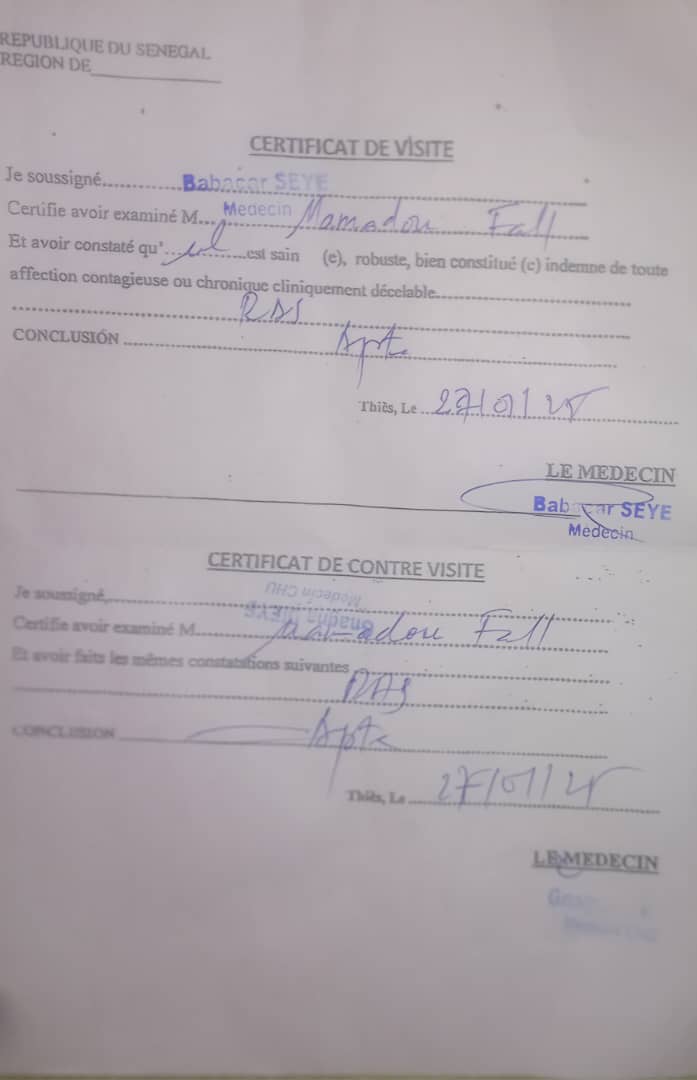 REPUBLIQUE DU SENEGAL
REGION DE
CERTIFICAT DE VISITE
Je soussigné Babacar SEYE
Medecin
Certifie avoir examiné M... Mamadou Fall
Et avoir constaté qu' il est sain (e), robuste, bien constitué (e) indemne de toute
affection contagieuse ou chronique cliniquement décelable
RAS
CONCLUSIÓN Apte
Thiès, Le 27/01/25
LE MEDECIN
Babacar SEYE
Medecin
CERTIFICAT DE CONTRE VISITE
Je soussigné,
Medecin CHU
Certifie avoir examiné M... Mamadou Fall
Et avoir faits les mêmes constatations suivantes
RAS
CONCLUSION Apte
Thiès, Le 27/01/25
LE MEDECIN